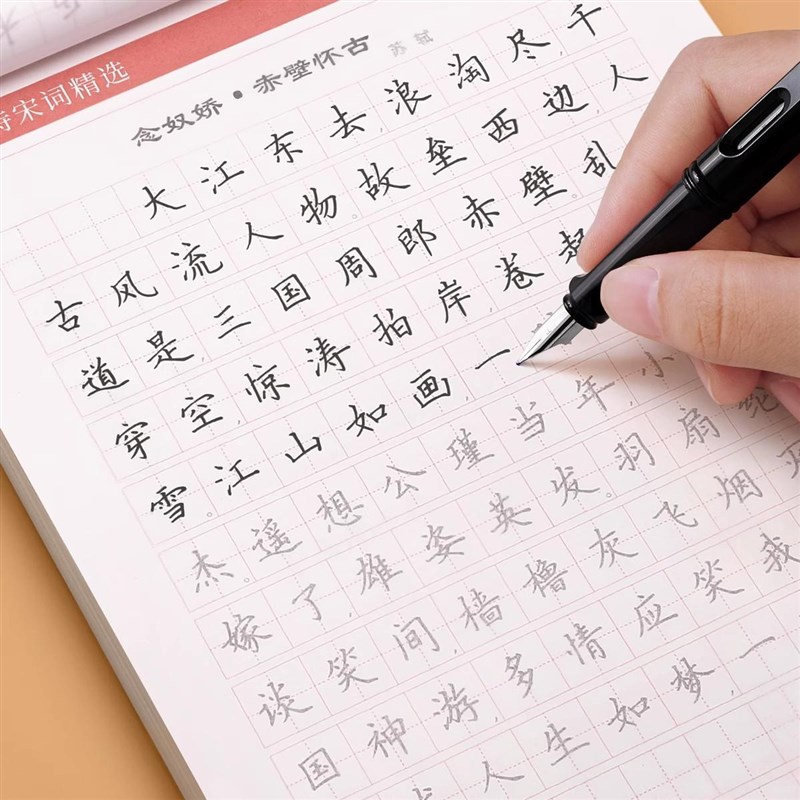 诗宋词精选
念奴娇·赤壁怀古 苏轼
大江东去,浪淘尽,千
古风流人物。故垒西边,人
道是,三国周郎赤壁。乱
穿空,惊涛拍岸,卷起
雪。江山如画,一
杰。遥想公瑾当年,小
嫁了,雄姿英发。羽扇纶
谈笑间,樯橹灰飞烟灭
国神游,多情应笑我
人生如梦,一